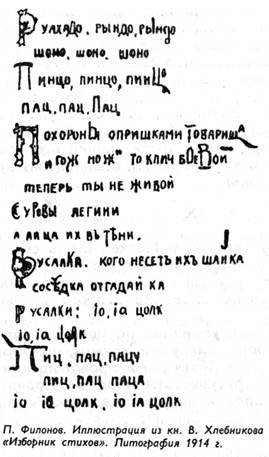 Руахадо, рындо, рындо
шоно, шоно, шоно
Пинцо, пинцо, пинцо
пац, пац, пац
Похороны опришками товарища
„гож нож" то клич боевой
теперь ты не живой
суровы легини
а лица их в тени.
Русалка. кого несетъ ихъ шайка
соседка отгадай ка
русалки: io, ia цолк
io, ia цолк
Пиц, пац, пацу
пиц, пац паца
io ia цолк, io ia цолк
П. Филонов. Иллюстрация из кн. В. Хлебникова
«Изборник стихов». Литография 1914 г.